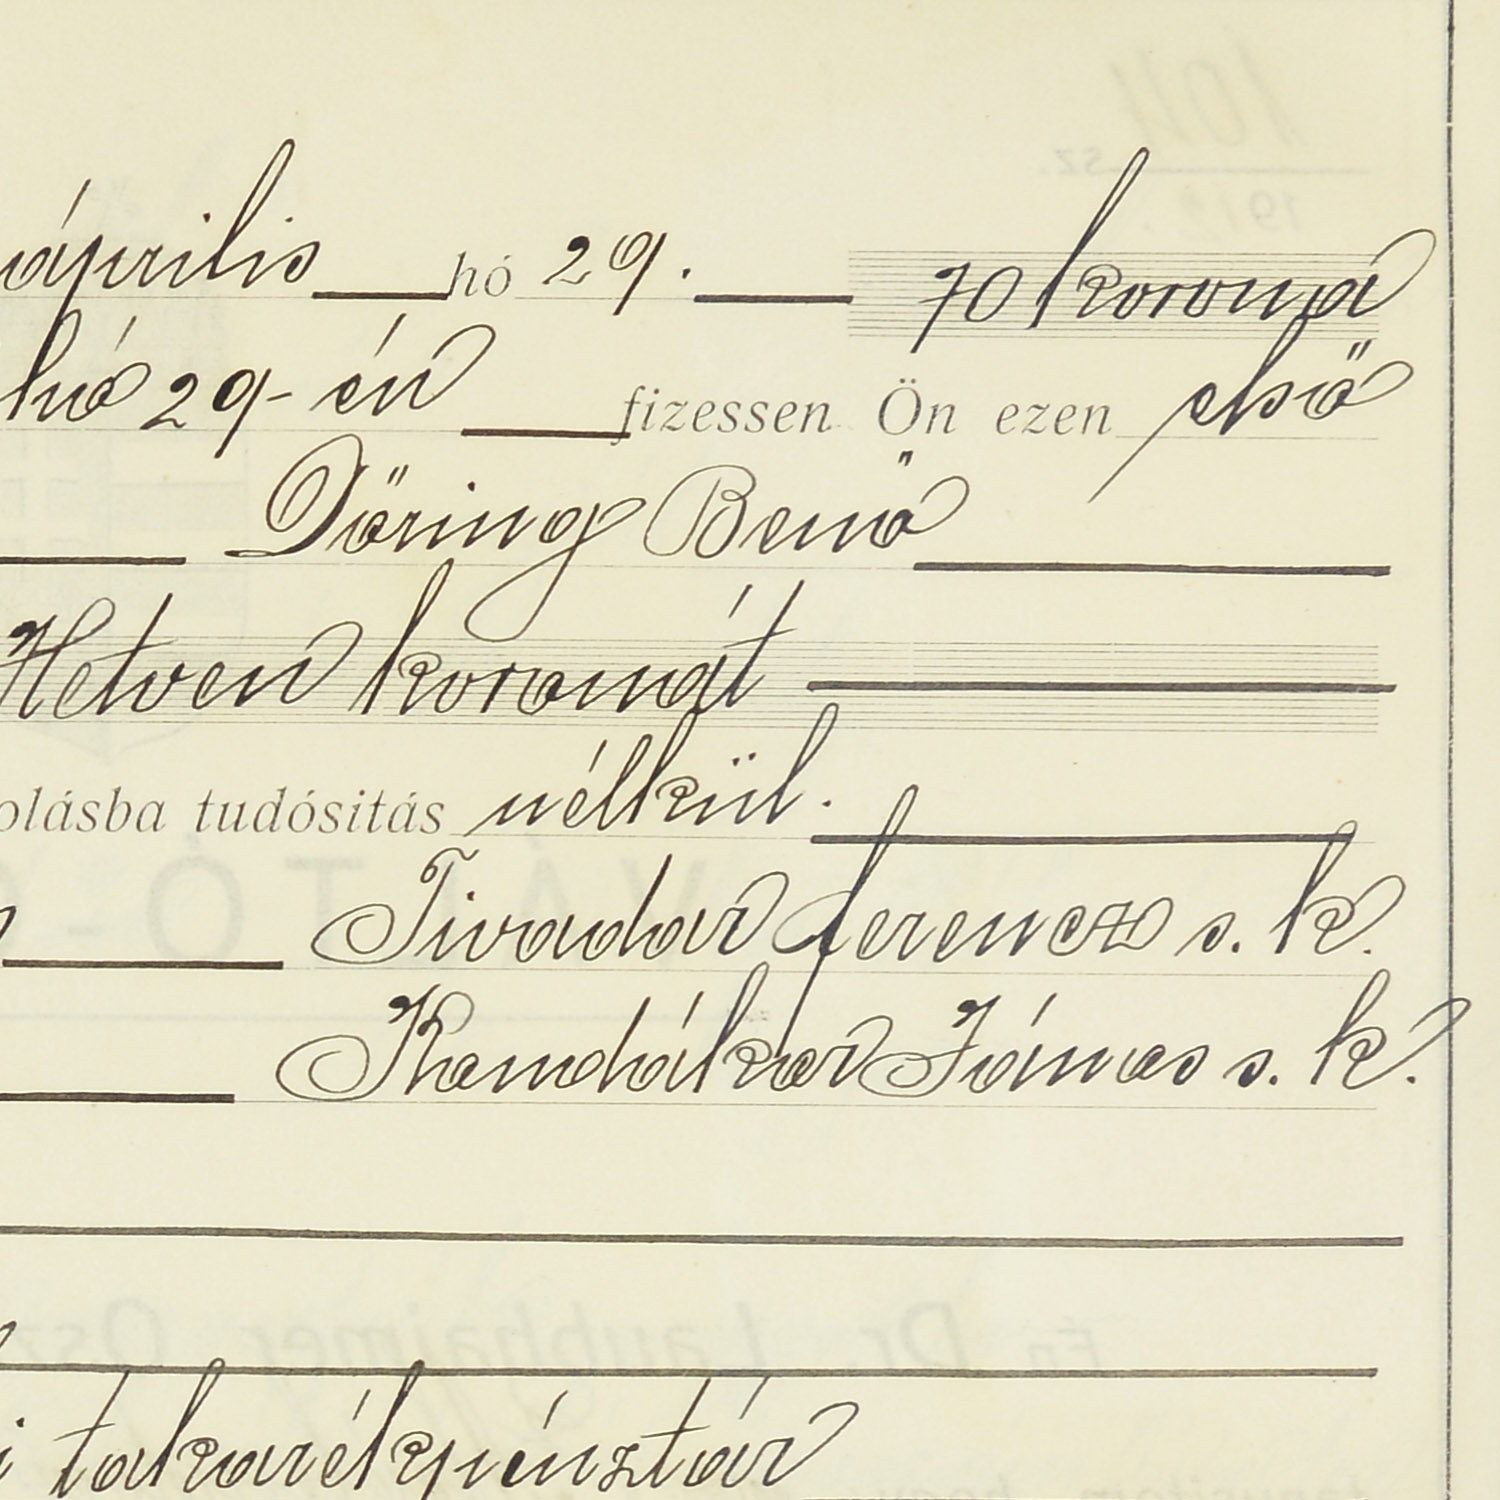 április hó 29. 70 korona
hó 29-én fizessen Ön ezen első
Döring Benő
Hetven koronát
olásba tudósitás nélkül.
Tivadar Ferencz s. k.
Kandákor János s. k.
i takarékpénztár